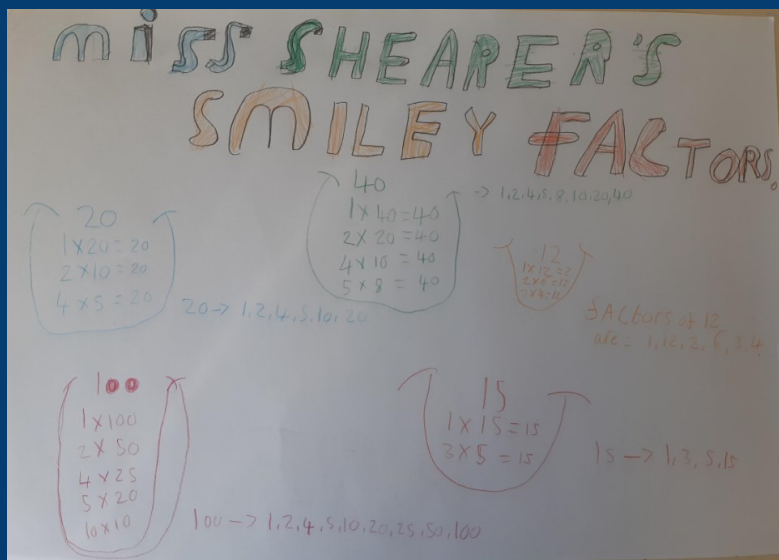 miSS SHEARER'S
SMILEY FACTORS.
20
1x20=20
2x10=20
4x5=20
20→1,2,4,5,10,20
40
1x40=40
2x20=40
4x10=40
5x8=40
→1,2,4,5,8,10,20,40
12
2x6=12
fACtors of 12
are = 1,12,2,6,3,4
100
1x100
2x50
4x25
5x20
10x10
100→1,2,4,5,10,20,25,50,100
15
1x15=15
3x5=15
15→1,3,5,15